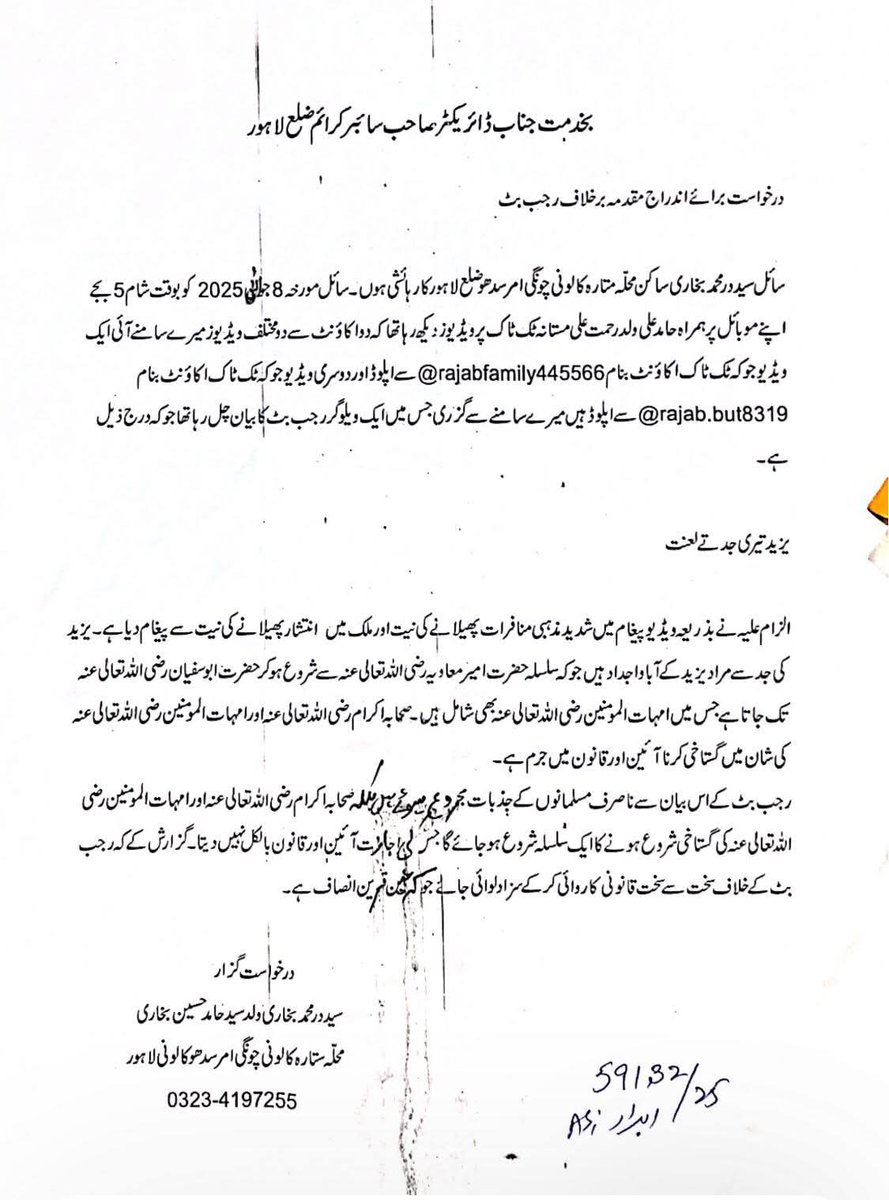 بخدمت جناب ڈائریکٹر صاحب سائبر کرائم ضلع لاہور
درخواست برائے اندراج مقدمہ برخلاف رجب بٹ
سائل سید در محمد بخاری ساکن محلہ ستارہ کالونی چونگی امر سدھو ضلع لاہور کا رہائشی ہوں۔ سائل مورخہ 8 جولائی 2025 کو بوقت شام 5 بجے
اپنے موبائل پر ہمراہ حامد علی ولد رحمت علی مستانہ ٹک ٹاک پر ویڈیوز دیکھ رہا تھا کہ دو اکاؤنٹ سے دو مختلف ویڈیوز میرے سامنے آئی ایک
ویڈیو جو کہ ٹک ٹاک اکاؤنٹ بنام @rajabfamily445566 سے اپلوڈ اور دوسری ویڈیو جو کہ ٹک ٹاک اکاؤنٹ بنام
@rajab.but8319 سے اپلوڈ ہیں میرے سامنے سے گزری جس میں ایک ویلوگر رجب بٹ کا بیان چل رہا تھا جو کہ درج ذیل
ہے۔
یزید تیری جد تے لعنت
الزام علیہ نے بذریعہ ویڈیو پیغام میں شدید مذہبی منافرات پھیلانے کی نیت اور ملک میں انتشار پھیلانے کی نیت سے پیغام دیا ہے۔ یزید
کی جد سے مراد یزید کے آباو اجداد ہیں جو کہ سلسلہ حضرت امیر معاویہ رضی اللہ تعالی عنہ سے شروع ہو کر حضرت ابو سفیان رضی اللہ تعالی عنہ
تک جاتا ہے جس میں امہات المومنین رضی اللہ تعالی عنہ بھی شامل ہیں۔ صحابہ اکرام رضی اللہ تعالی عنہ اور امہات المومنین رضی اللہ تعالی عنہ
کی شان میں گستاخی کرنا آئین اور قانون میں جرم ہے۔
رجب بٹ کے اس بیان سے نا صرف مسلمانوں کے جذبات مجروح ہوئے ہیں بلکہ صحابہ اکرام رضی اللہ تعالی عنہ اور امہات المومنین رضی
اللہ تعالی عنہ کی گستاخی شروع ہونے کا ایک سلسلہ شروع ہو جائے گا جس کی اجازت آئین اور قانون بالکل نہیں دیتا۔ گزارش کے کہ رجب
بٹ کے خلاف سخت سے سخت قانونی کاروائی کر کے سزا دلوائی جائے جو کہ عین قرین انصاف ہے۔
درخواست گزار
سید در محمد بخاری ولد سید حامد حسین بخاری
محلہ ستارہ کالونی چونگی امر سدھو کالونی لاہور
0323-4197255
59132/25
ابرار ASI